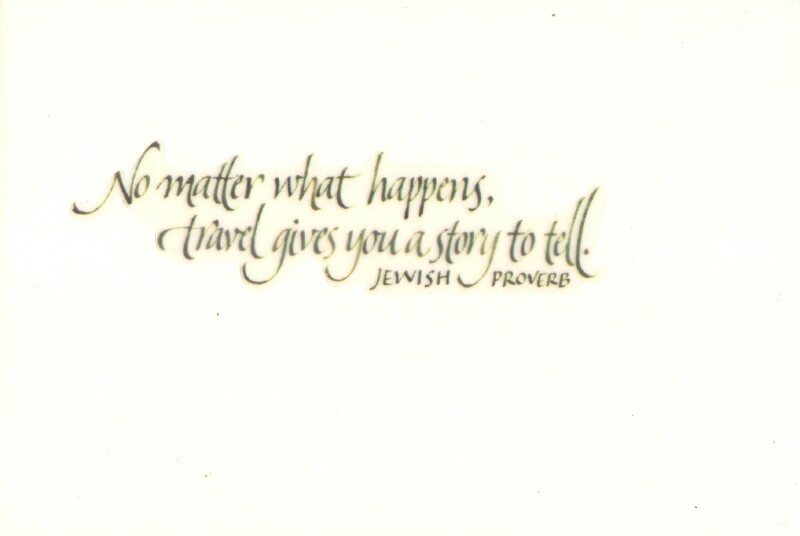 No matter what happens,
travel gives you a story to tell.
JEWISH PROVERB